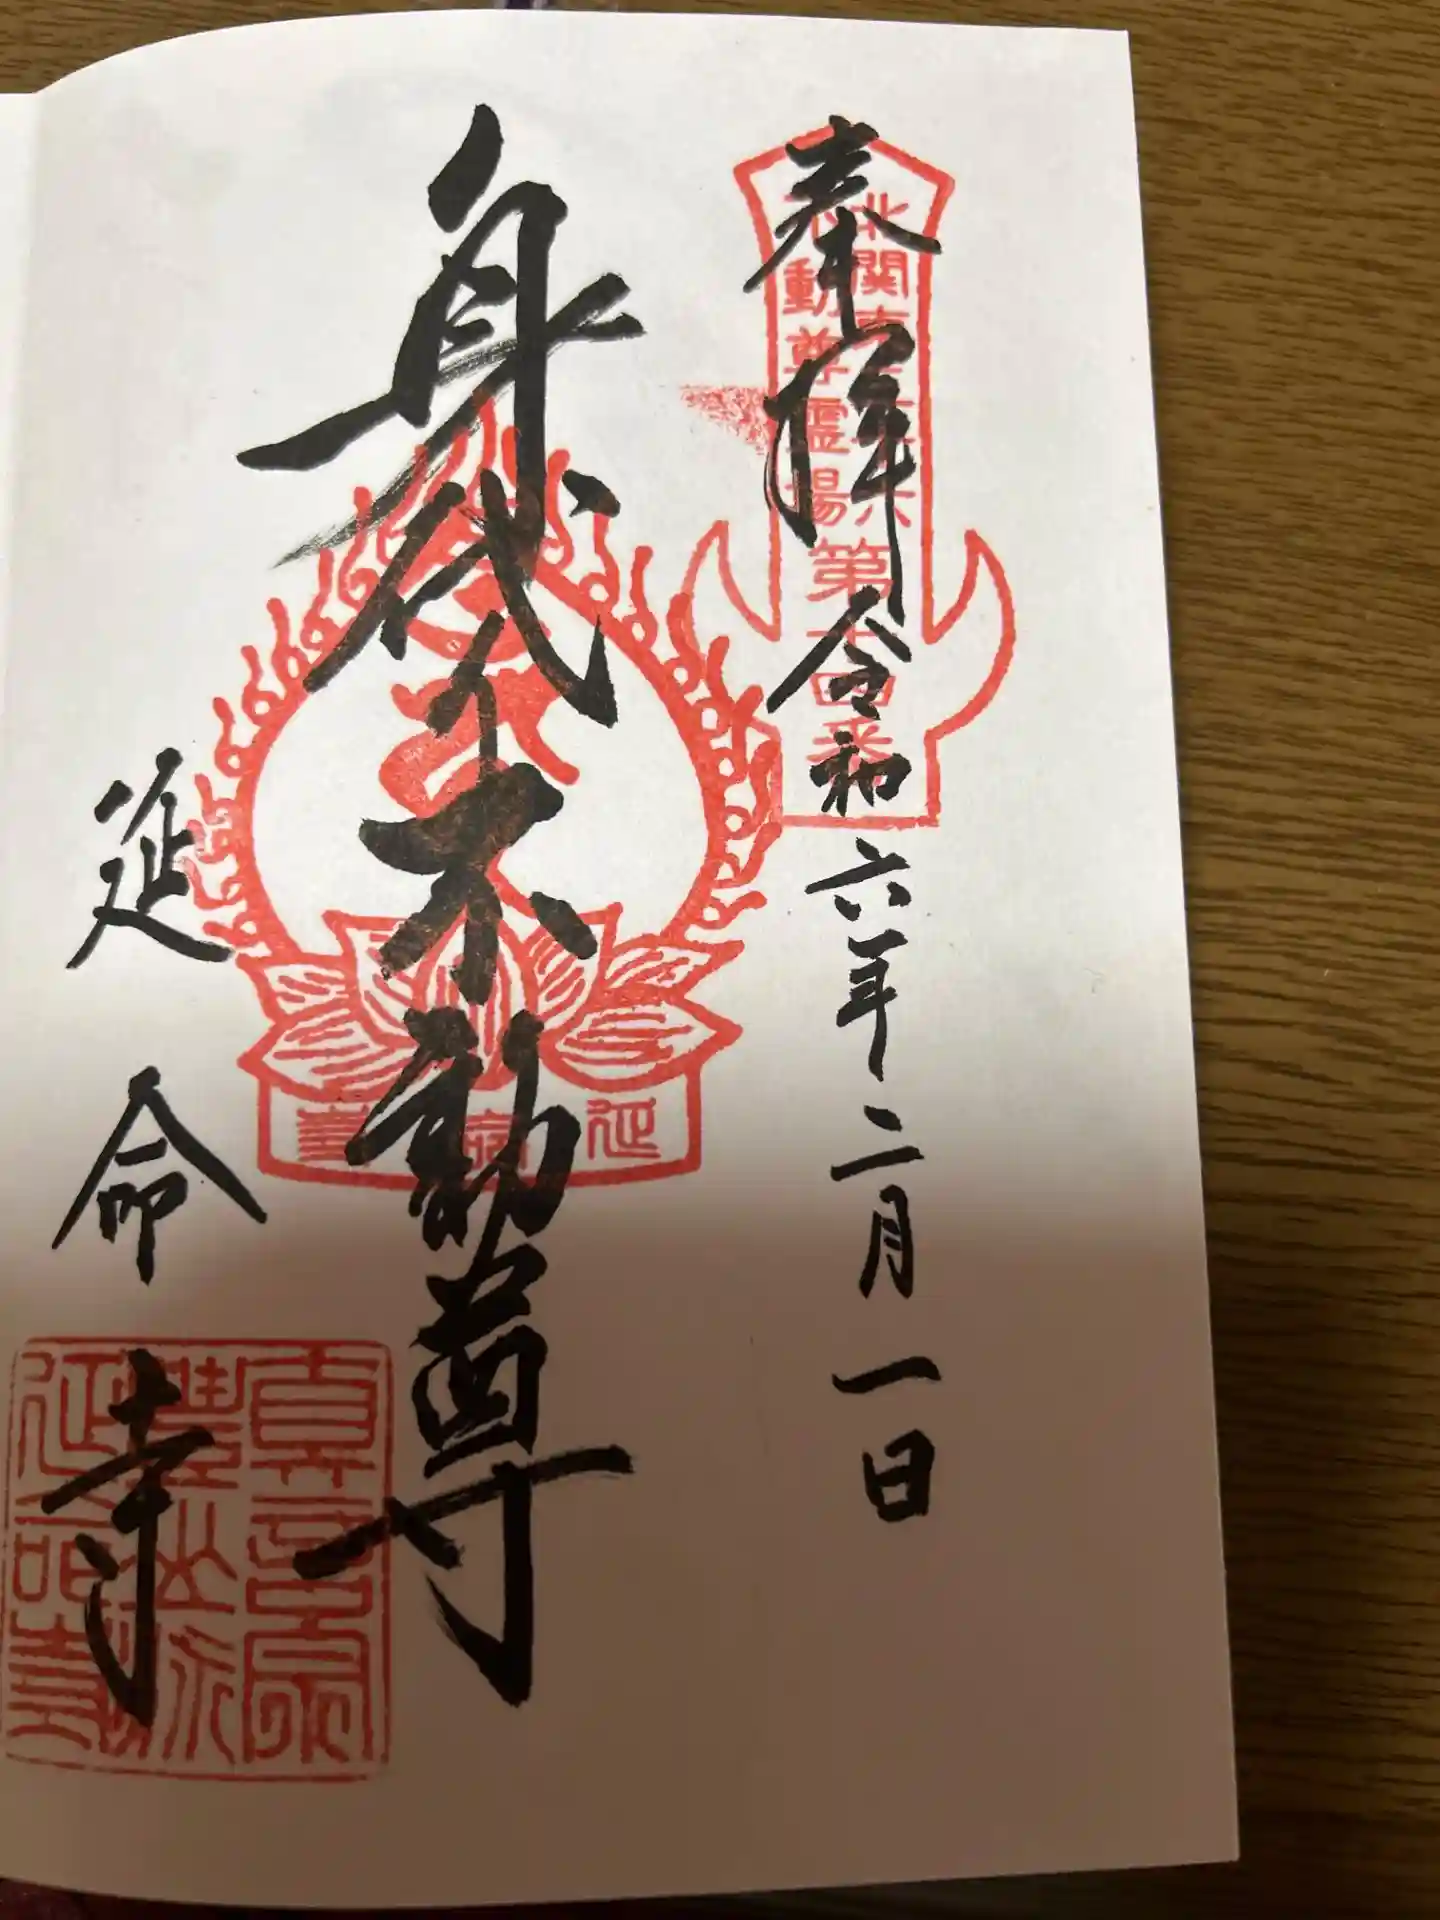 奉拝
令和六年二月一日
北関東三十六
不動尊霊場
第十四番
身代不動尊
延命寺
延命寺
真言宗
豊山派
延命寺